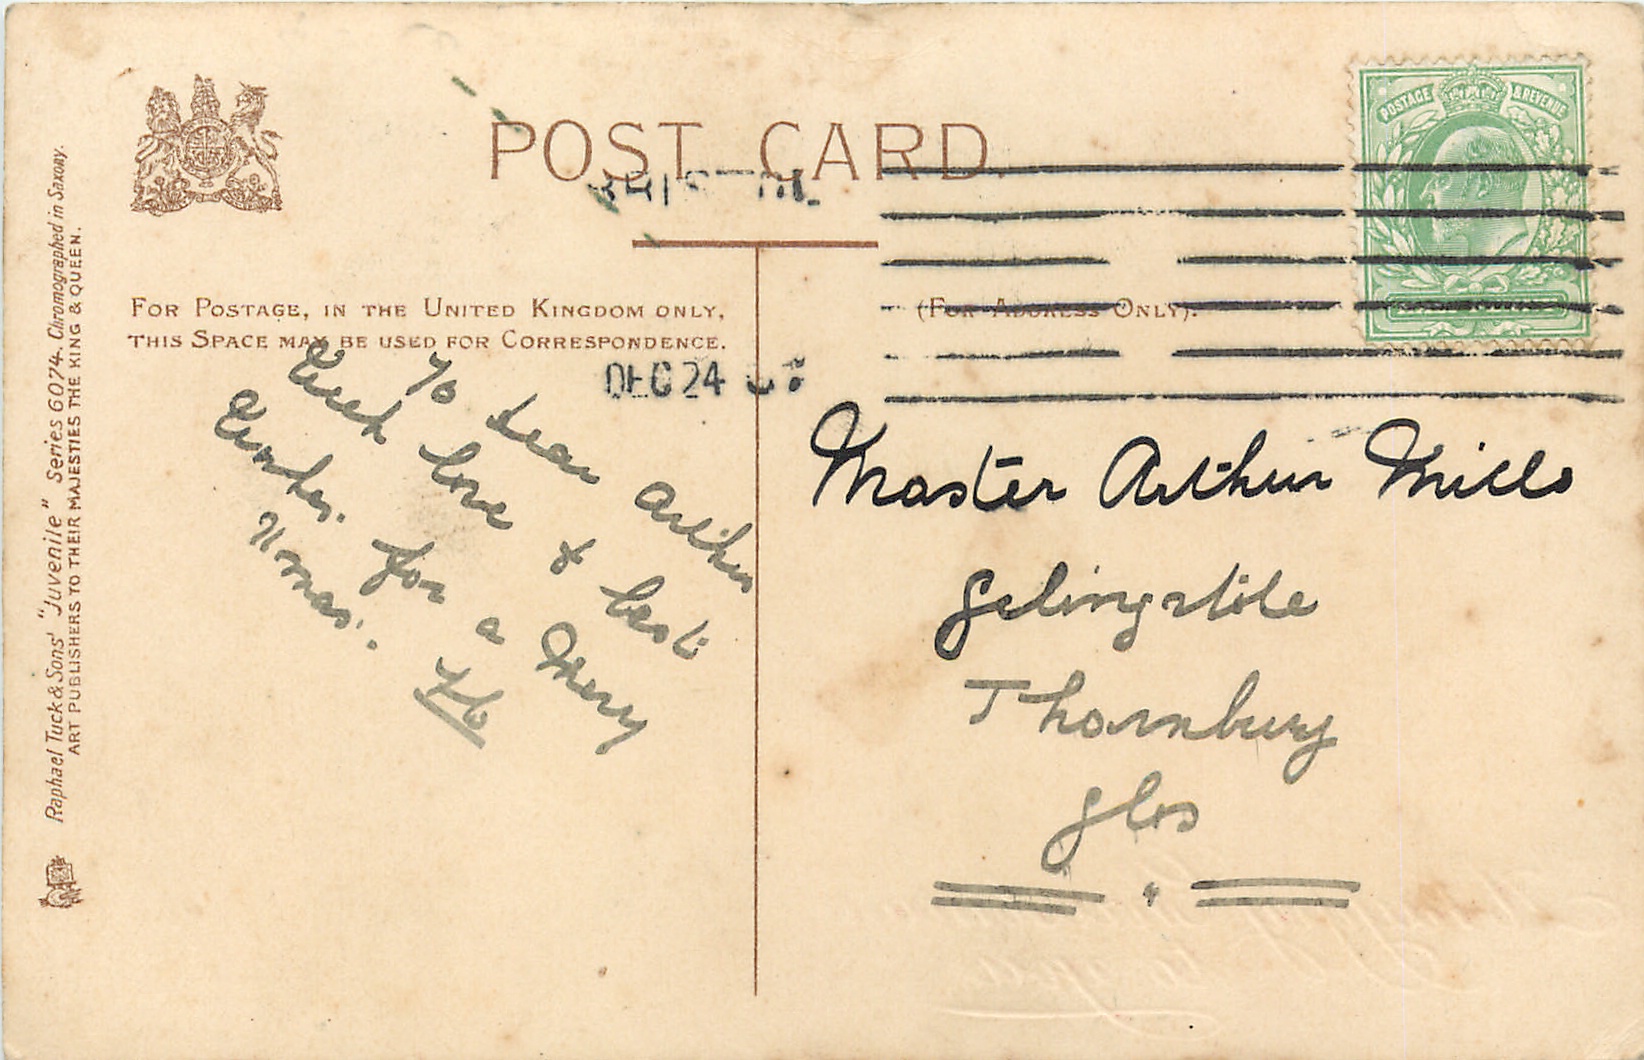 POST CARD.
POSTAGE & REVENUE
FOR POSTAGE, IN THE UNITED KINGDOM ONLY,
THIS SPACE MAY BE USED FOR CORRESPONDENCE.
(FOR ADDRESS ONLY).
DEC 24
To dear Arthur
with love & best
Wishes for a Merry
Xmas.
Master Arthur Mills
Thornbury
Glos
Raphael Tuck & Sons' "Juvenile" Series 6074. Chromographed in Saxony.
ART PUBLISHERS TO THEIR MAJESTIES THE KING & QUEEN.